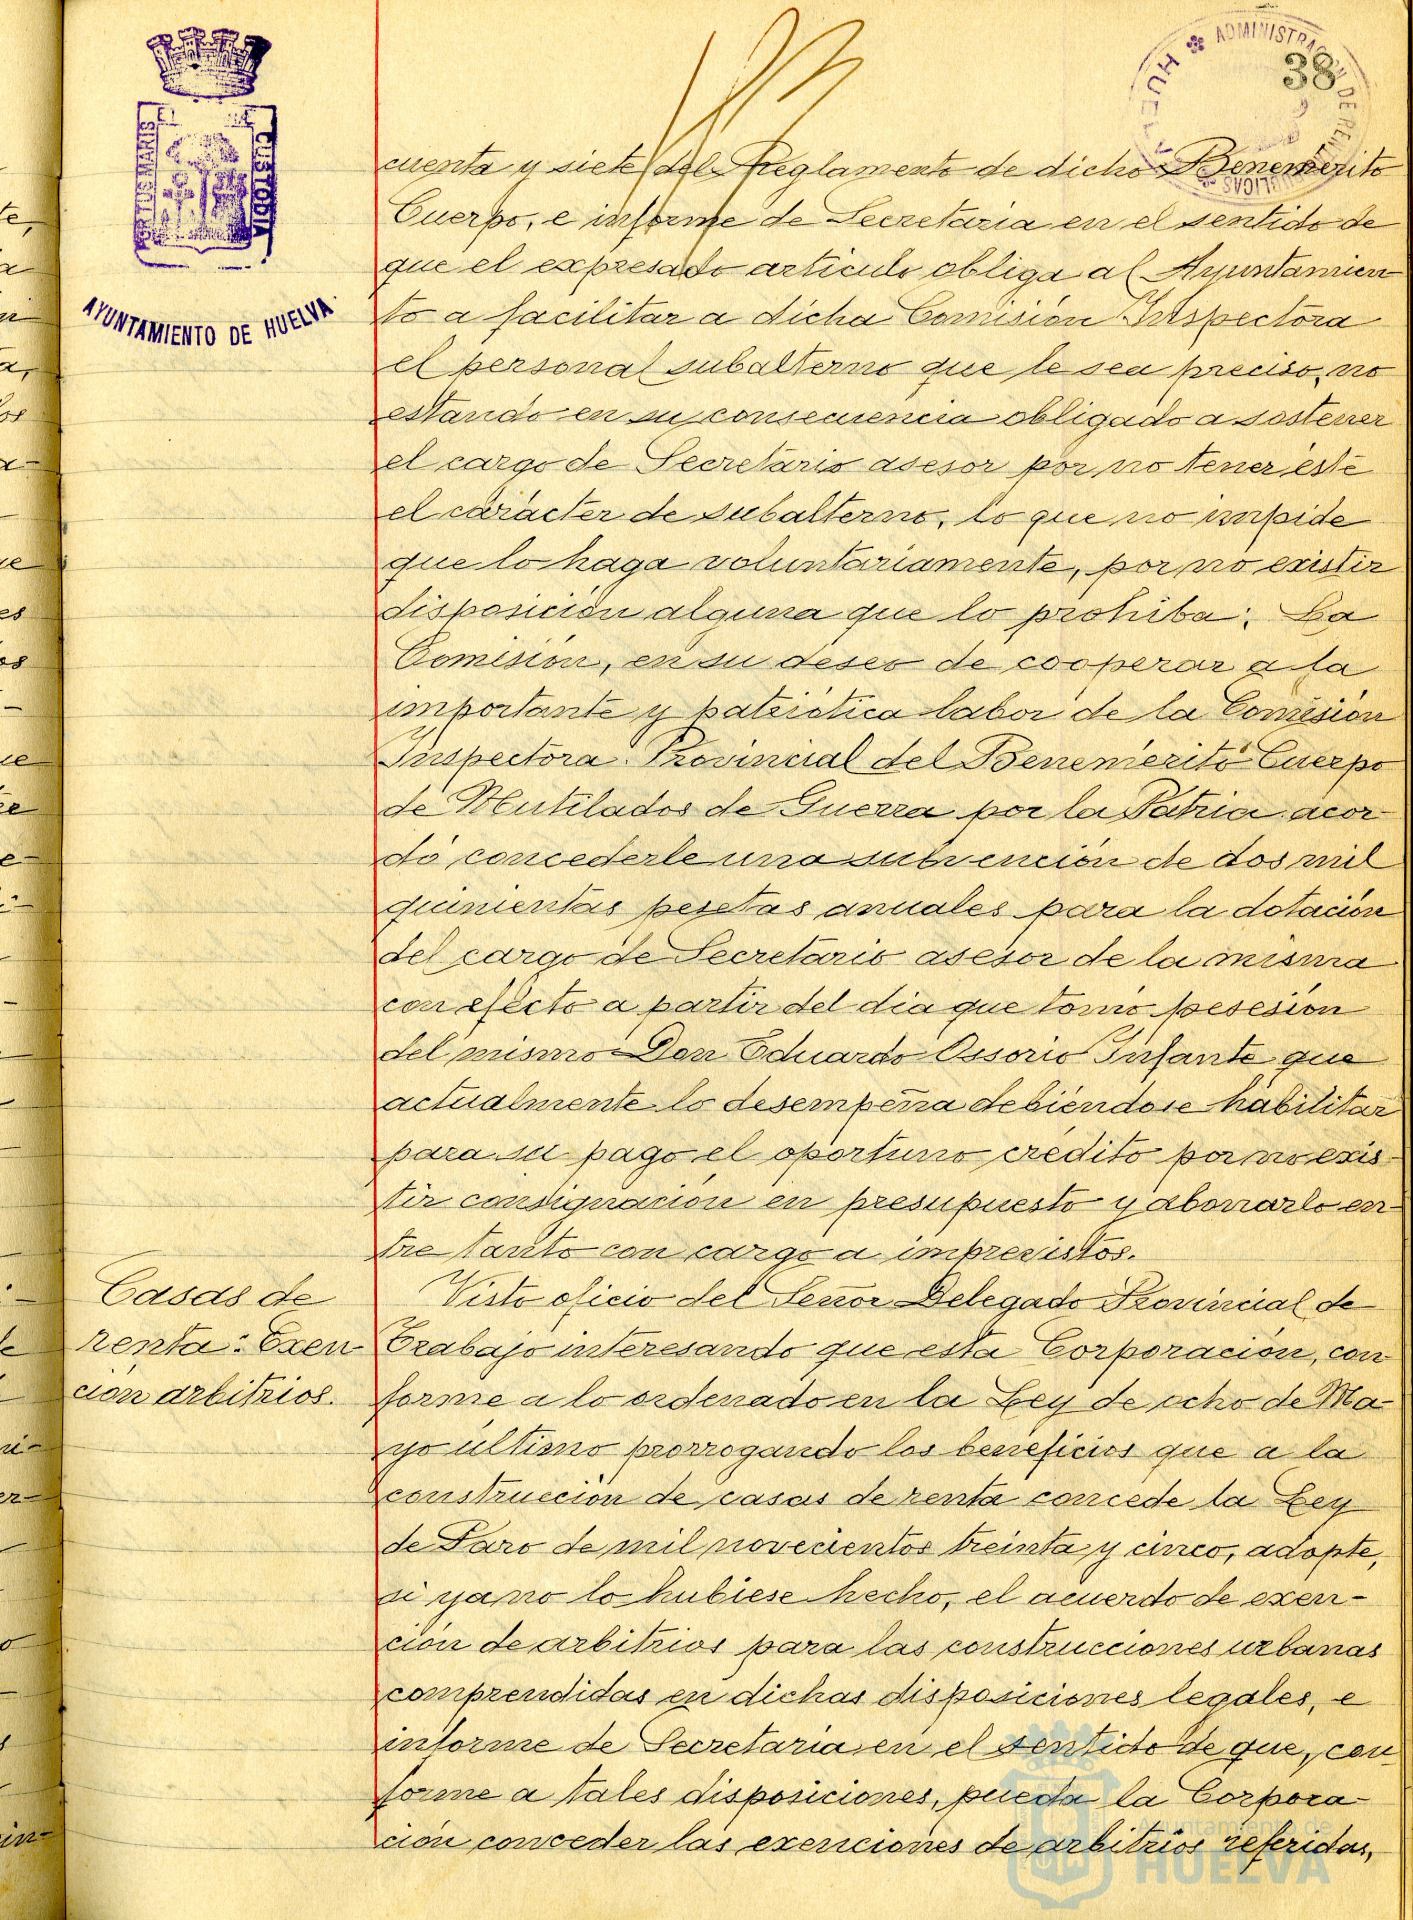 PORTUS MARIS
CUSTODIA
AYUNTAMIENTO DE HUELVA
ADMINISTRACION DE RENTAS PUBLICAS
HUELVA
38
cuenta y siete del Reglamento de dicho Benemerito
Cuerpo, e informe de Secretaría en el sentido de
que el expresado artículo obliga al Ayuntamien
to a facilitar a dicha Comisión Inspectora
el personal subalterno que le sea preciso, no
estando en su consecuencia obligado a sostener
el cargo de Secretario asesor por no tener éste
el carácter de subalterno, lo que no impide
que lo haga voluntariamente, por no existir
disposición alguna que lo prohiba; La
Comisión, en su deseo de cooperar a la
importante y patriótica labor de la Comisión
Inspectora Provincial del Benemérito Cuerpo
de Mutilados de Guerra por la Patria acor-
dó concederle una subvención de dos mil
quinientas pesetas anuales para la dotación
del cargo de Secretario asesor de la misma
con efecto a partir del dia que tomó pesesión
del mismo Don Eduardo Ossorio Infante que
actualmente lo desempeña debiéndose habilitar
para su pago el oportuno crédito por no exis-
tir consignación en presupuesto y abonarlo en-
tre tanto con cargo a imprevistos.
Casas de
renta: Exen-
ción arbitrios.
Visto oficio del Señor Delegado Provincial de
Trabajo interesando que esta Corporación, con
forme a lo ordenado en la Ley de ocho de Ma-
yo último prorrogando los beneficios que a la
construcción de casas de renta concede la Ley
de Paro de mil novecientos treinta y cinco, adopte,
si ya no lo hubiese hecho, el acuerdo de exen-
ción de arbitrios para las construcciones urbanas
comprendidas en dichas disposiciones legales, e
informe de Secretaría en el sentido de que, con
forme a tales disposiciones, pueda la Corpora-
ción conceder las exenciones de arbitrios referidas,
Ayuntamiento de
HUELVA